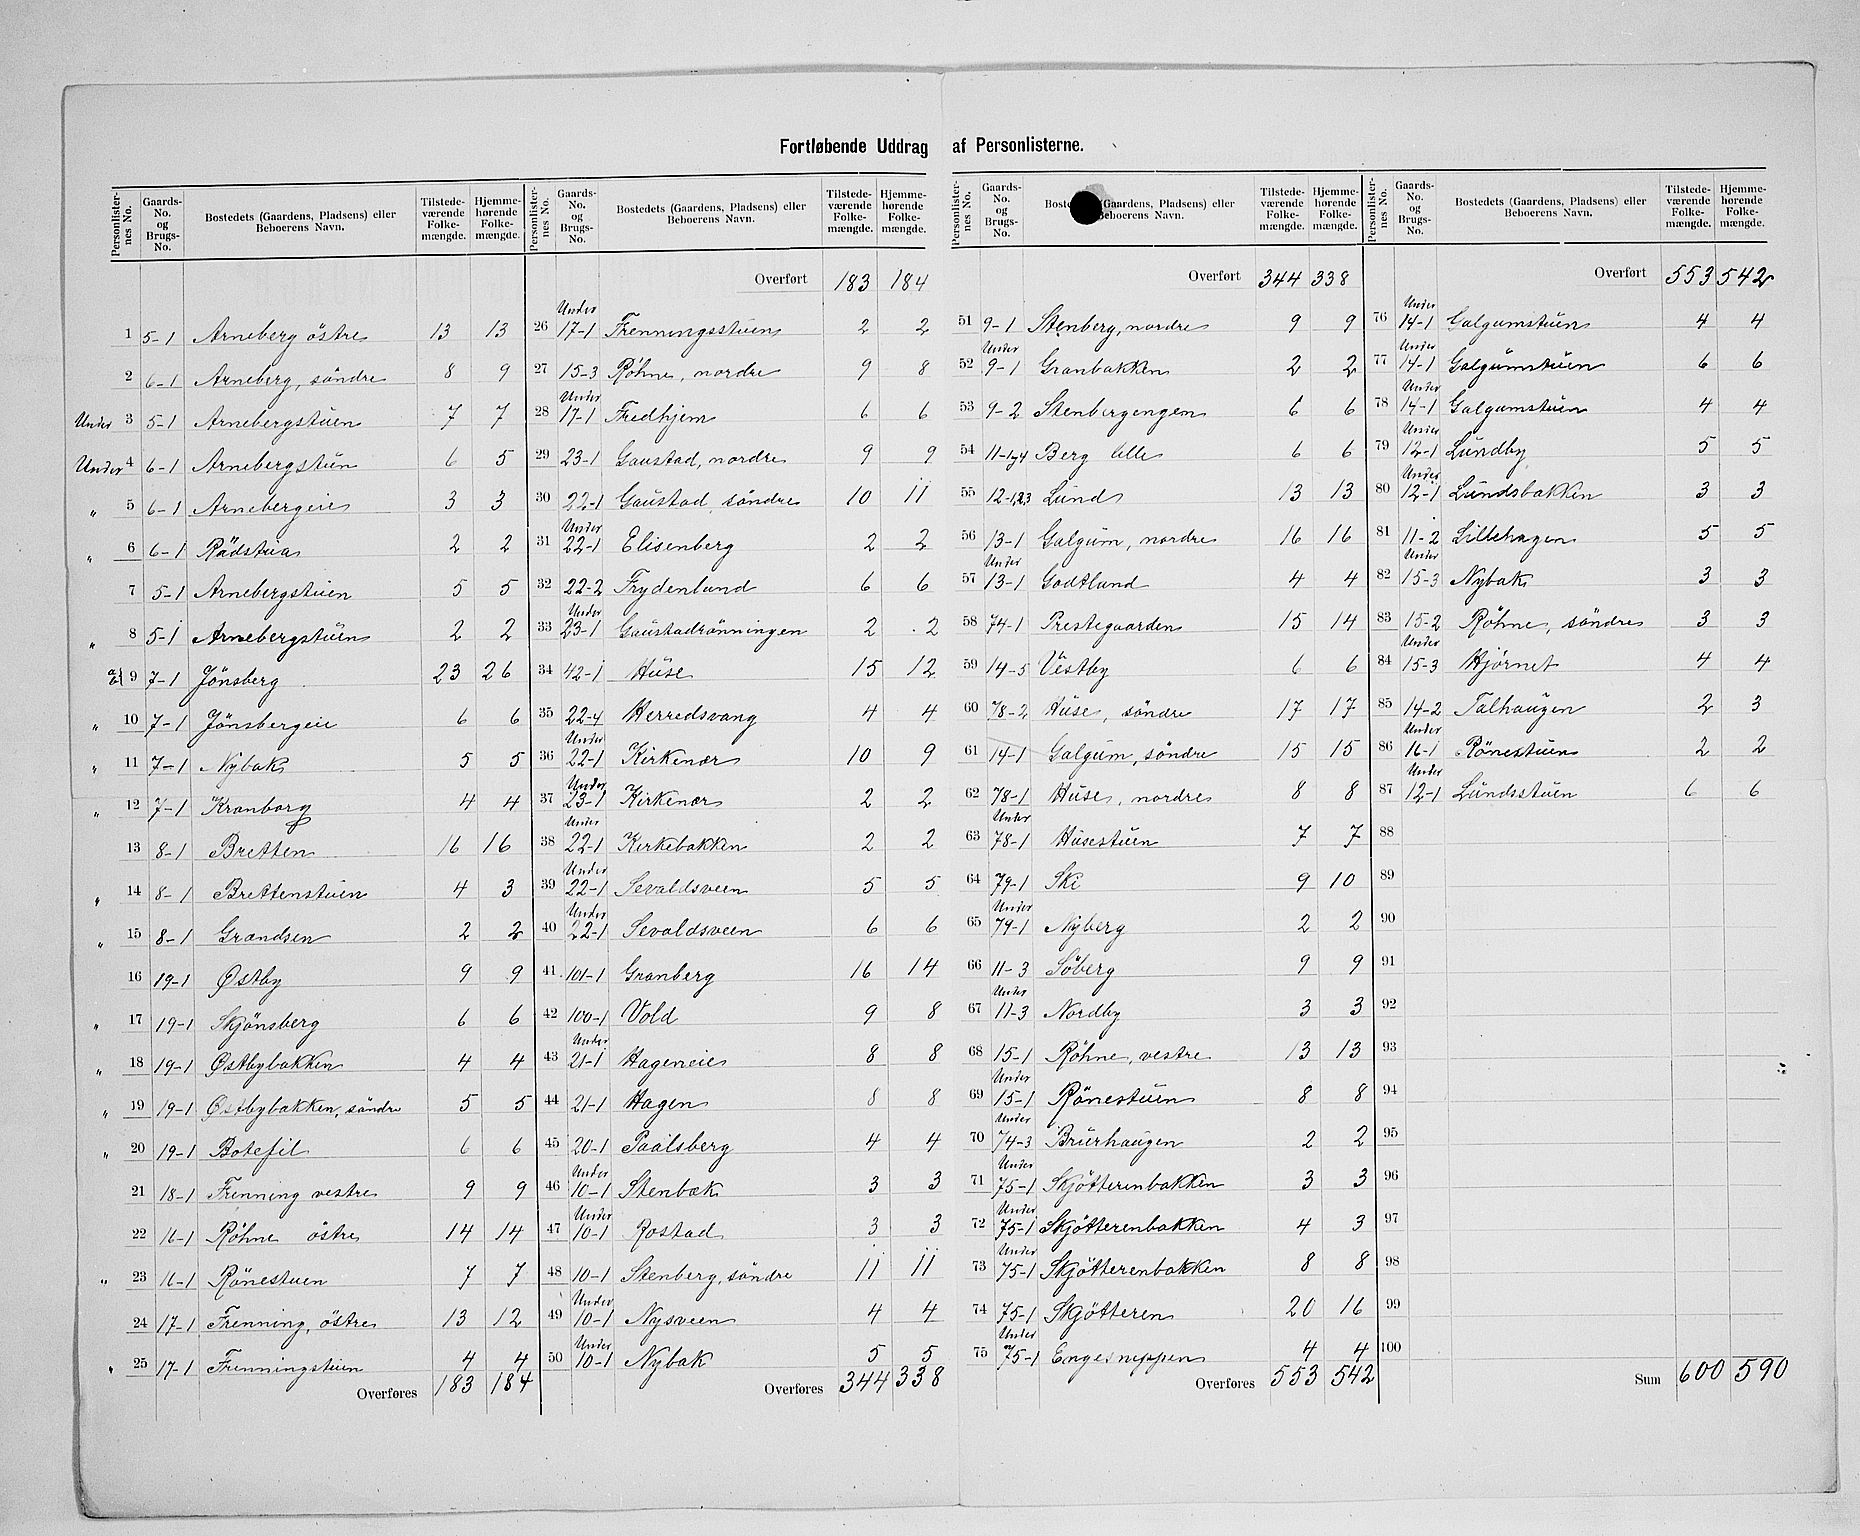 Fortløbende Uddrag af Personlisterne.
Personlister-nes No. Gaards-No. og Brugs-No. Bostedets (Gaardens, Pladsens) eller Beboerens Navn. Tilstede-værende Folke-mængde. Hjemme-hørende Folke-mængde.
1 5-1 Arneberg östre 13 13
2 6-1 Arneberg, söndre 8 9
Under 3 5-1 Arnebergstuen 7 7
Under 4 6-1 Arnebergstun 6 5
" 5 6-1 Arnebergeie 3 3
" 6 6-1 Rädstua 2 2
7 5-1 Arnebergstuen 5 5
" 8 5-1 Arnebergstuen 2 2
9 7-1 Jönsberg 23 26
" 10 7-1 Jönsbergeie 6 6
" 11 7-1 Nybak 5 5
" 12 7-1 Kronborg 4 4
13 8-1 Bretten 16 16
" 14 8-1 Brettenstuen 4 3
" 15 8-1 Grandsen 2 2
16 19-1 Østby 9 9
" 17 19-1 Skjönsberg 6 6
" 18 19-1 Østbybakken 4 4
" 19 19-1 Østbybakken, söndre 5 5
" 20 19-1 Botefil 6 6
21 18-1 Frenning vestre 9 9
22 16-1 Røhne östre 14 14
" 23 16-1 Rönestuen 7 7
24 17-1 Frenning, östre 13 12
" 25 17-1 Frenningstuen 4 4
Overføres 183 184
Personlister-nes No. Gaards-No. og Brugs-No. Bostedets (Gaardens, Pladsens) eller Beboerens Navn. Tilstede-værende Folke-mængde. Hjemme-hørende Folke-mængde.
Overført 183 184
26 Under 17-1 Frenningsstuen 2 2
27 15-3 Røhne, nordre 9 8
28 Under 17-1 Fredhjem 6 6
29 23-1 Gaustad, nordre 9 9
30 22-1 Gaustad, söndre 10 11
31 Under 22-1 Elisenberg 2 2
32 22-2 Frydenlund 6 6
33 Under 23-1 Gaustadrönningen 2 2
34 42-1 Huse 15 12
35 22-4 Herredsvang 4 4
36 Under 22-1 Kirkenær 10 9
37 Under 23-1 Kirkenær 2 2
38 Under 22-1 Kirkebakken 2 2
39 Under 22-1 Sevaldsveen 5 5
40 Under 22-1 Sevaldsveen 6 6
41 101-1 Granberg 16 14
42 100-1 Vold 9 8
43 Under 21-1 Hageneie 8 8
44 21-1 Hagen 8 8
45 20-1 Paalsberg 4 4
46 Under 10-1 Stenbæk 3 3
47 Under 10-1 Rostad 3 3
48 10-1 Stenberg, söndre 11 11
49 Under 10-1 Nysveen 4 4
50 Under 10-1 Nybak 5 5
Overføres 344 338
Personlister-nes No. Gaards-No. og Brugs-No. Bostedets (Gaardens, Pladsens) eller Beboerens Navn. Tilstede-værende Folke-mængde. Hjemme-hørende Folke-mængde.
Overført 344 338
51 9-1 Stenberg, nordre 9 9
52 Under 9-1 Granbakken 2 2
53 9-2 Stenbergengen 6 6
54 11-1 Berg lille 6 6
55 12-1,2,3 Lund 13 13
56 13-1 Galgum, nordre 16 16
57 Under 13-1 Godtlund 4 4
58 74-1 Prestegaarden 15 14
59 14-5 Vestby 6 6
60 78-2 Huse, söndre 17 17
61 14-1 Galgum, söndre 15 15
62 78-1 Huse, nordre 8 8
63 Under 78-1 Husestuen 7 7
64 79-1 Ski 9 10
65 Under 79-1 Nyberg 2 2
66 11-3 Söberg 9 9
67 Under 11-3 Nordby 3 3
68 15-1 Røhne, vestre 13 13
69 Under 15-1 Rönestuen 8 8
70 Under 74-3 Brurhaugen 2 2
71 Under 75-1 Skjötterenbakken 3 3
72 Under 75-1 Skjötterenbakken 4 3
73 Under 75-1 Skjötterenbakken 8 8
74 75-1 Skjötteren 20 16
75 Under 75-1 Engesneppen 4 4
Overføres 553 542
Personlister-nes No. Gaards-No. og Brugs-No. Bostedets (Gaardens, Pladsens) eller Beboerens Navn. Tilstede-værende Folke-mængde. Hjemme-hørende Folke-mængde.
Overført 553 542
76 Under 14-1 Galgumstuen 4 4
77 Under 14-1 Galgumstuen 6 6
78 Under 14-1 Galgumstuen 4 4
79 Under 12-1 Lundby 5 5
80 Under 12-1 Lundsbakken 3 3
81 11-2 Lillehagen 5 5
82 Under 15-3 Nybak 3 3
83 15-2 Røhne, söndre 3 3
84 Under 15-3 Hjørnet 4 4
85 14-2 Talhaugen 2 3
86 Under 16-1 Rönestuen 2 2
87 Under 12-1 Lundsstuen 6 6
88
89
90
91
92
93
94
95
96
97
98
99
100
Sum 600 590